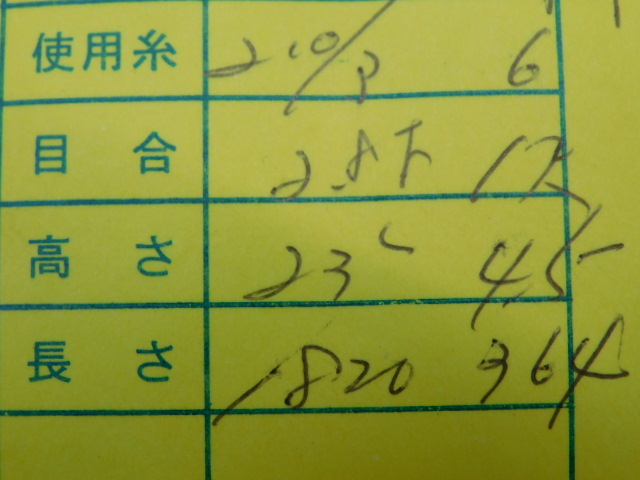 使用糸 210/3 6
目合 2.8寸
高さ 23 45
長さ 1820 364